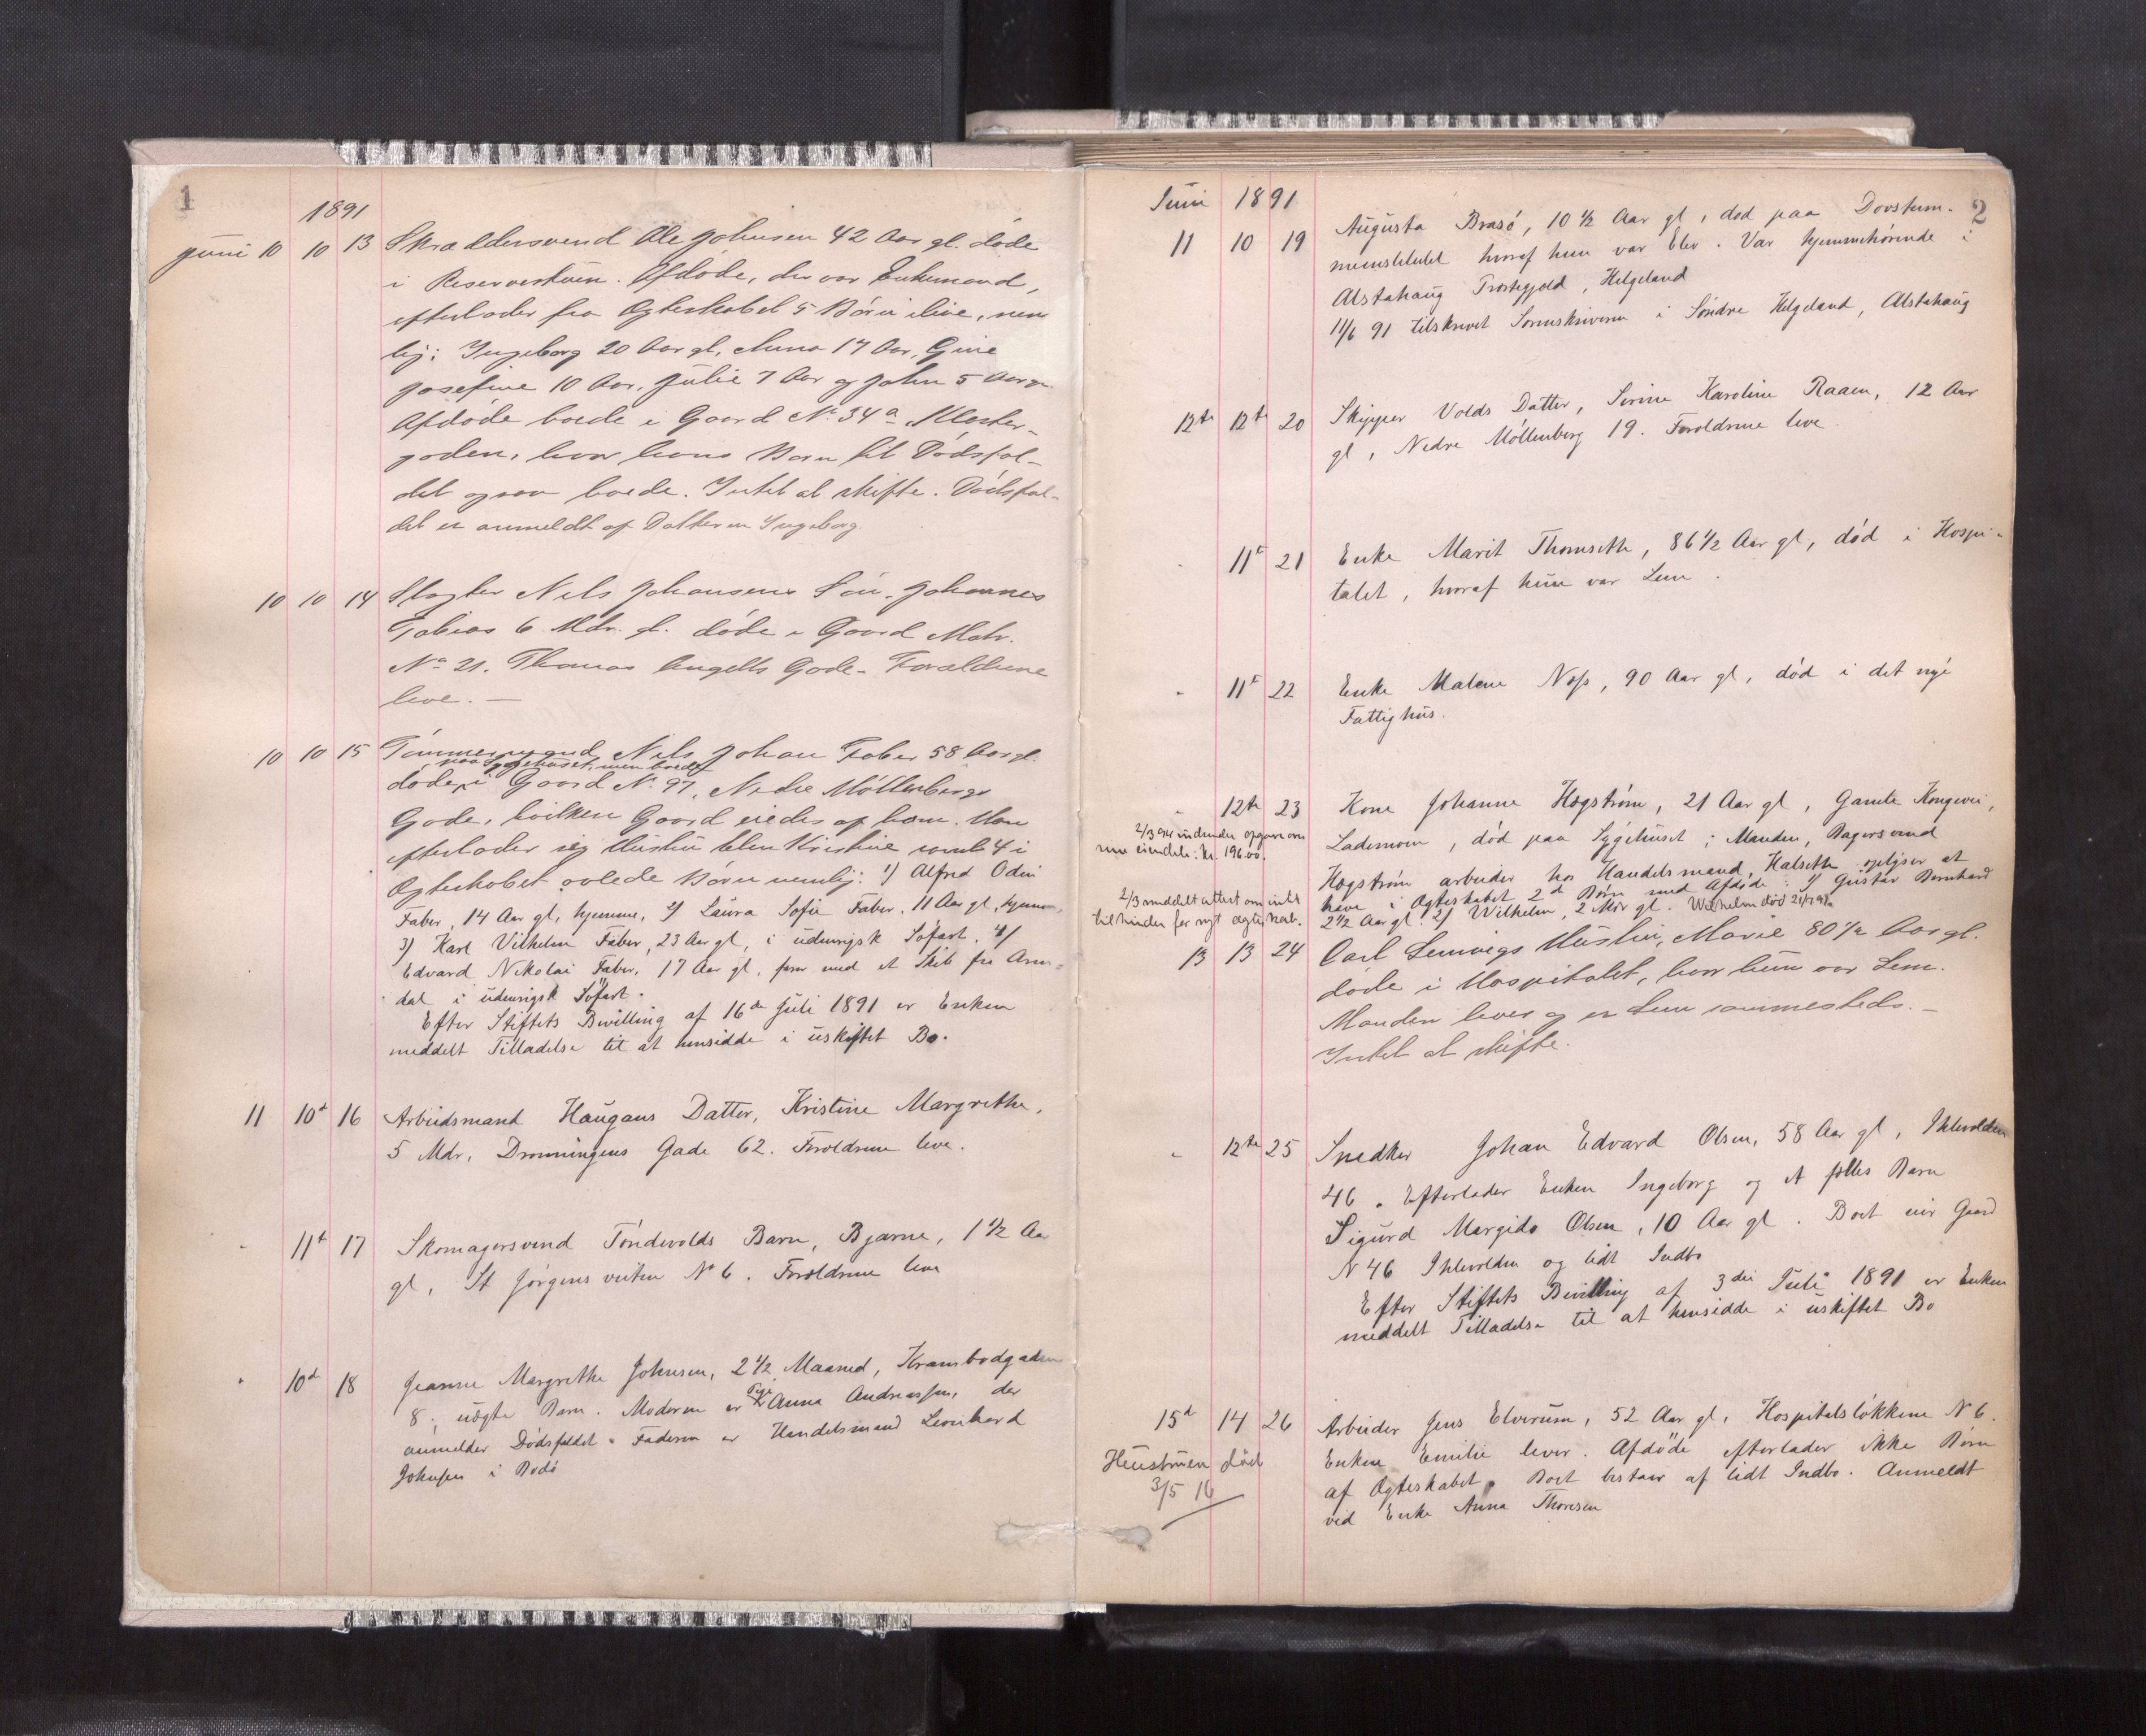 1
1891
Juni 10 10 13 Skræddersvend Ole Johnsen 42 Aar gl. døde
i Reservestuen. Afdøde, der var Enkemand,
efterlader fra Ægteskabet 5 Børn ilive, nem
lig: Ingeborg 20 Aar gl, Anna 17 Aar, Gine
Josefine 10 Aar, Julie 7 Aar og John 5 Aar gl.
Afdøde boede i Gaard No 34a Kloster-
gaden, hvor hans Børn til Dødsfal-
det ogsaa boede. Intet at skifte. Dødsfal-
det er anmeldt af Datteren Ingeborg.
10 10 14 Slagter Nils Johansens Søn, Johannes
Tobias 6 Mdr. gl. døde i Gaard Matr.
No 21. Thomas Angells Gade. Forældrene
leve. —
10 10 15 Tømmermand Nils Johan Faber 58 Aar gl.
paa Sygehuset, men boede
døde i Gaard No 97, Nedre Møllenbergs
Gade, hvilken Gaard eiedes af ham. Han
efterlader sig Hustru Elen Kristine samt 4 i
Ægteskabet avlede Børn nemlig: 1) Alfred Odin
Faber, 14 Aar gl, hjemme, 2) Laura Sofie Faber, 11 Aar gl, hjemme,
3) Karl Vilhelm Faber, 23 Aar gl, i udenrigsk Søfart, 4)
Edvard Nikolai Faber, 17 Aar gl, farer med et Skib fra Aren-
dal i udenrigsk Søfart.
Efter Stiftets Bevilling af 16de Juli 1891 er Enken
meddelt Tilladelse til at hensidde i uskiftet Bo.
11 10d 16 Arbeidsmand Haugans Datter, Kristine Margrethe,
5 Mdr, Dronningens Gade 62. Forældrene leve.
- 11t 17 Skomagersvend Tøndevolds Barn, Bjarne, 1 1/2 Aar
gl, St Jørgens veiten No 6. Forældrene leve
" 10d 18 Jeanne Margrethe Johnsen, 2 1/2 Maaned, Krambodgaden
8; uægte Barn. Moderen er Pige Anna Andreassen, der
anmelder Dødsfaldet. Faderen er Handelsmand Leonhard
Johnsen i Bodø
2
Juni 1891
11 10 19 Augusta Brasø, 10 1/2 Aar gl, død paa Døvstum-
meinstitutet hvoraf hun var Elev. Var hjemmehørende i
Alstahaug Præstegjeld, Helgeland
11/6 91 tilskrevet Sorenskriveren i Søndre Helgeland, Alstahaug
12te 12te 20 Skipper Volds Datter, Sirine Karoline Raaen, 12 Aar
gl, Nedre Møllenberg 19. Forældrene leve
- 11t 21 Enke Marit Thomseth, 86 1/2 Aar gl, død i Hospi-
talet, hvoraf hun var Lem.
- 11t 22 Enke Malene Næss, 90 Aar gl, død i det nye
Fattighus.
- 12te 23 Kone Johanne Hægstrøm, 21 Aar gl, Gamle Kongevei,
Lademoen, død paa Sygehuset; Manden, Bagersvend
Hægstrøm arbeider hos Handelsmand Halseth oplyser at
have i Ægteskabet 2d Børn med Afdøde: 1) Gustav Bernhard
2 1/2 Aar gl. 2) Wilhelm, 2 Mdr gl. Wilhelm død
2/3 inden opgave om
sine eiendele: kr. 196.00.
2/3 meddelt attest om intet
til hinder for nyt ægteskab.
13 13 24 Carl Lemvigs Hustru, Marie 80 1/2 Aar gl.
døde i Hospitalet, hvor hun var Lem.
Manden lever og er Lem sammesteds. —
Intet at skifte.
- 12te 25 Snedker Johan Edvard Olsen, 58 Aar gl, Ihlevolden
46. Efterlader Enken Ingeborg og et fælles Barn
Sigurd Margido Olsen, 10 Aar gl. Boet eier Gaard
N 46 Ihlevolden og lidt Indbo
Efter Stiftets Bevilling af 3die Juli 1891 er Enken
meddelt Tilladelse til at hensidde i uskiftet Bo
15d 14 26 Arbeider Jens Elverum, 52 Aar gl, Hospitalsløkkene N 6.
Enken Emilie lever. Afdøde efterlader ikke Børn
af Ægteskabet. Boet bestaar af lidt Indbo. Anmeldt
ved Enke Anna Thoresen
Heustruen død
3/5 16